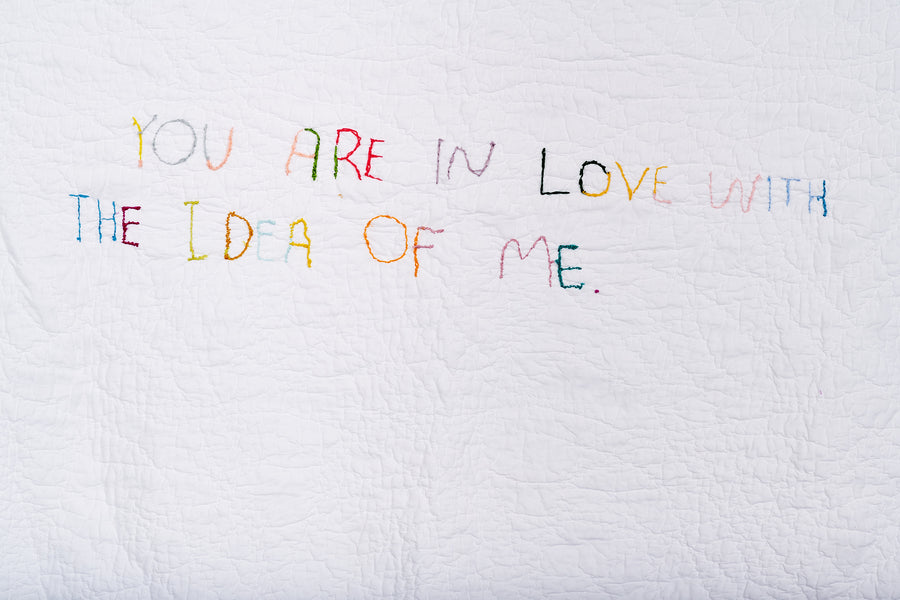 YOU ARE IN LOVE WITH
THE IDEA OF ME.